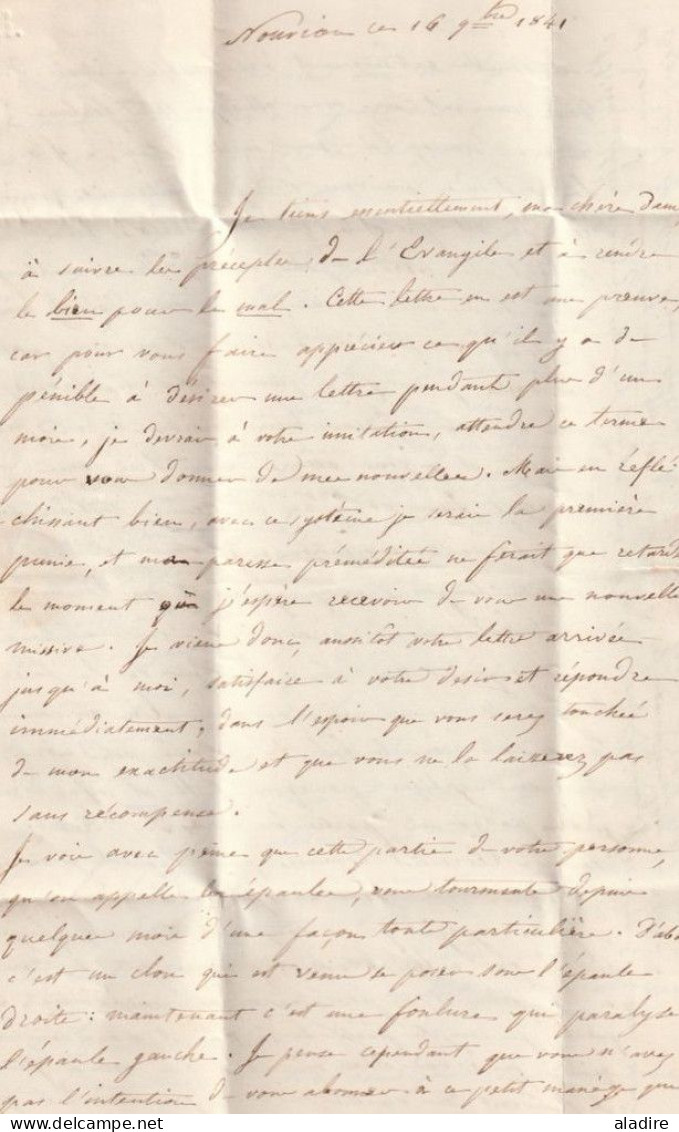 Nouvion ce 16 9bre 1841
Je tiens essentiellement, ma chère dame,
à suivre les préceptes de l'Evangile et à rendre
le bien pour le mal. Cette lettre en est une preuve,
car pour vous faire apprécier ce qu'il y a de
pénible à désirer une lettre pendant plus d'un
mois, je devrais à votre imitation, attendre ce terme
pour vous donner de mes nouvelles. Mais en réflé-
chissant bien, avec ce système je serais la première
punie, et ma paresse préméditée ne ferait que retard
le moment où j'espère recevoir de vous une nouvelle
missive. Je viens donc, aussitôt votre lettre arrivée
jusqu'à moi, satisfaire à votre désir et répondre
immédiatement, dans l'espoir que vous serez touchée
de mon exactitude et que vous ne la laisserez pas
sans récompense.
Je vois avec peine que cette partie de votre personne,
qu'on appelle les épaules, vous tourmente depuis
quelques mois d'une façon toute particulière. D'abo
c'est un clou qui est venu se poser sous l'épaule
droite: maintenant c'est une foulure qui paralyse
l'épaule gauche. Je pense cependant que vous n'avez
pas l'intention de vous abonner à ce petit manège que
aladire